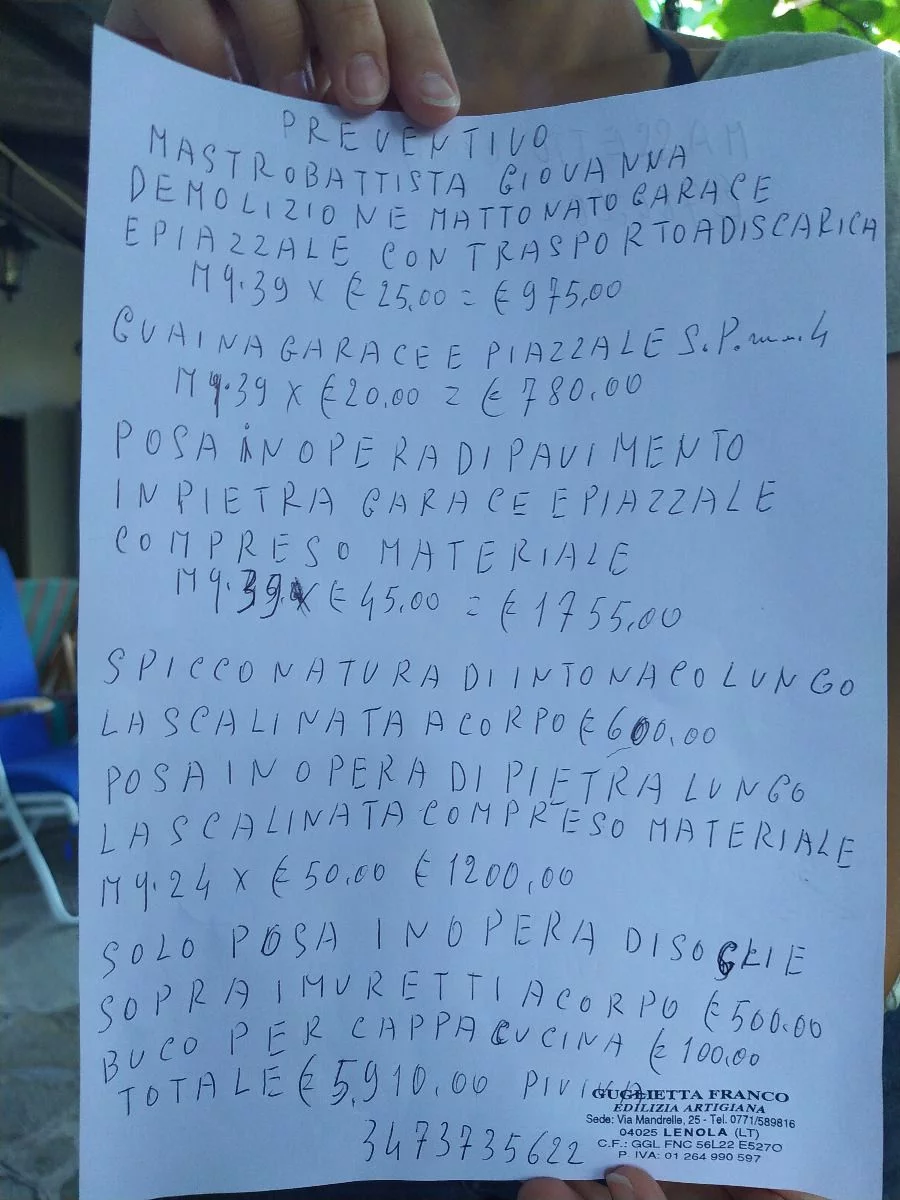 PREVENTIVO
MASTROBATTISTA GIOVANNA
DEMOLIZIONE MATTONATO GARACE
E PIAZZALE CON TRASPORTO A DISCARICA
Mq. 39 x € 25,00 = € 975,00
GUAINA GARACE E PIAZZALE S.P.m.m. 4
Mq. 39 x € 20,00 = € 780,00
POSA IN OPERA DI PAVIMENTO
IN PIETRA GARACE E PIAZZALE
COMPRESO MATERIALE
Mq. 39 x € 45,00 = € 1755,00
SPICCONATURA DI INTONACO LUNGO
LA SCALINATA A CORPO € 600,00
POSA IN OPERA DI PIETRA LUNGO
LA SCALINATA COMPRESO MATERIALE
Mq. 24 x € 50,00 € 1200,00
SOLO POSA IN OPERA DI SOGLIE
SOPRA I MURETTI A CORPO € 500,00
BUCO PER CAPPA CUCINA € 100,00
TOTALE € 5,910,00 PIV IVA
GUGLIETTA FRANCO
EDILIZIA ARTIGIANA
Sede: Via Mandrelle, 25 - Tel. 0771/589816
04025 LENOLA (LT)
C.F.: GGL FNC 56L22 E527O
P. IVA: 01 264 990 597
3473735622